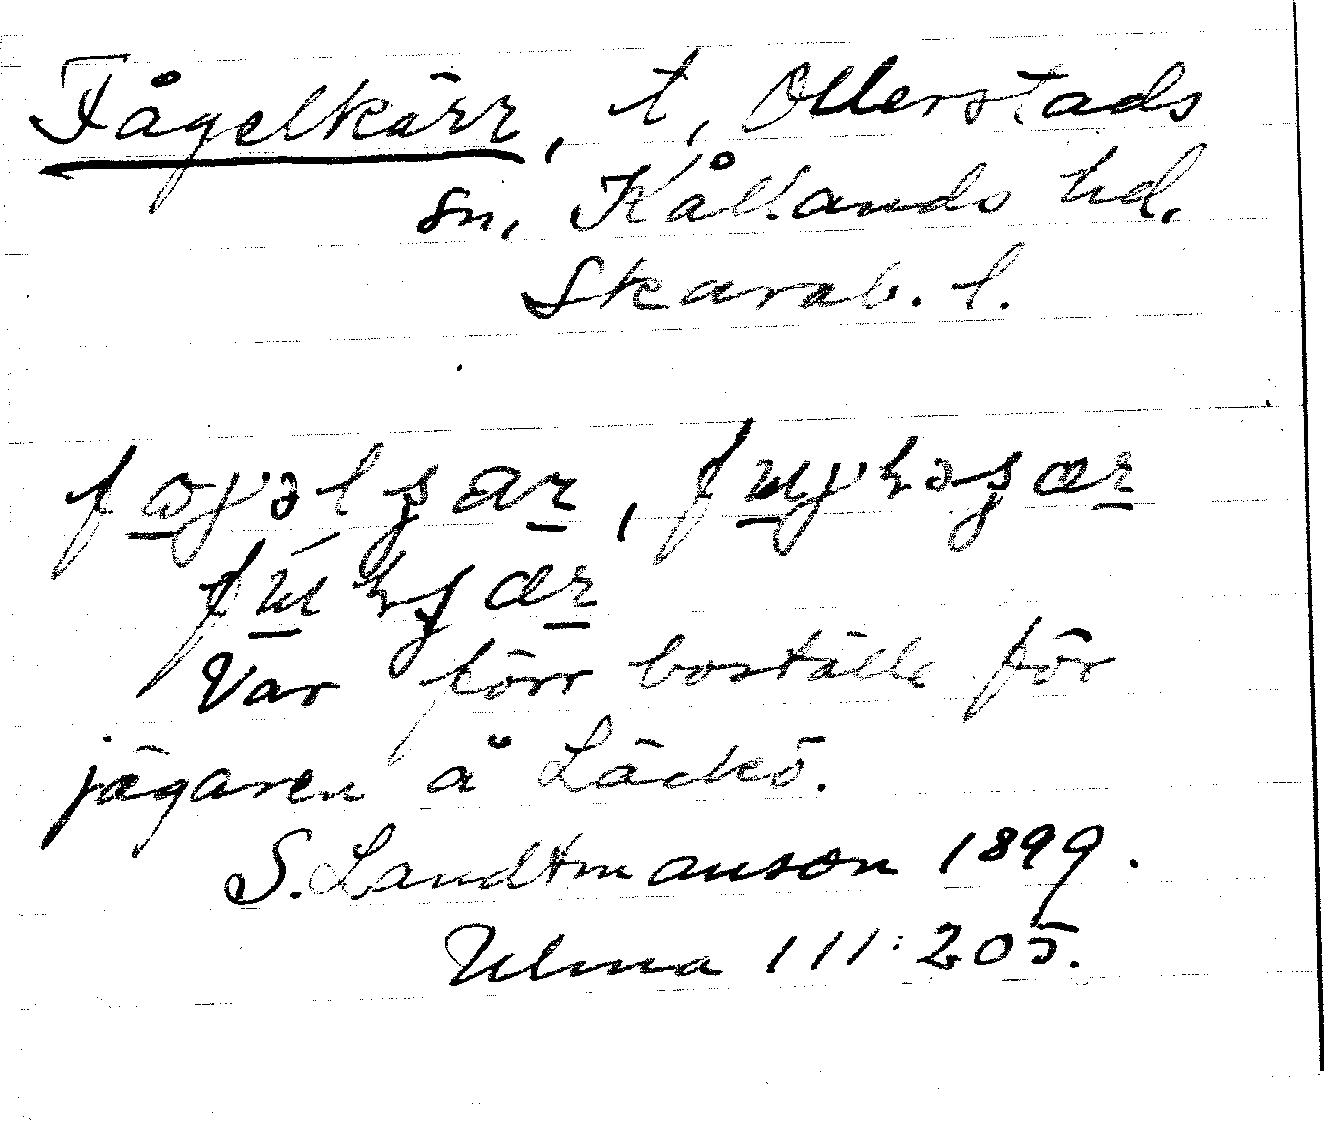 Fågelkärr, t, Ollerstads
sn, Kållands hd.
Skarab. l.
Var förr boställe för
jägaren å Läckö.
S. Landtmanson 1899.
Ulma 111:205.